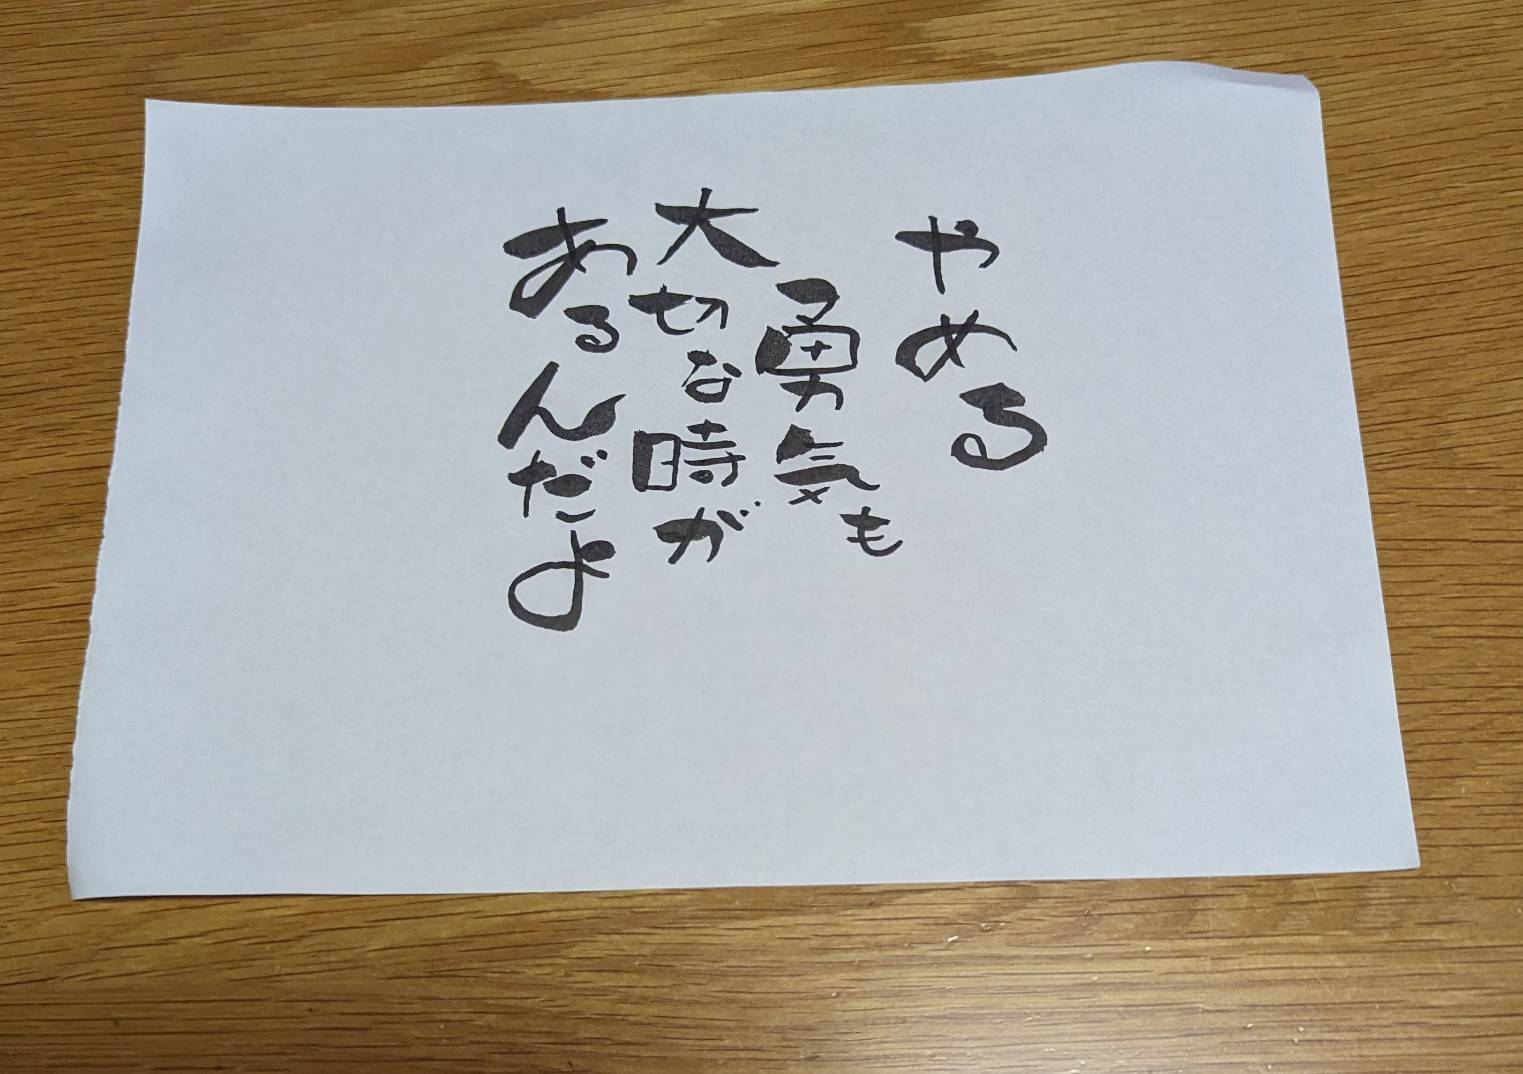 やめる
勇気も
大切な時が
あるんだよ